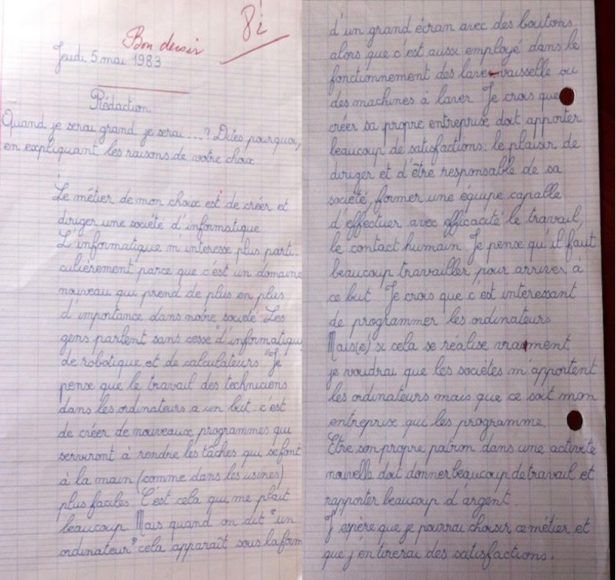 Bon devoir
8½
Jeudi 5 mai 1983
Rédaction
Quand je serai grand je serai ... ? Dites pourquoi,
en expliquant les raisons de votre choix.
Le métier de mon choix est de créer et
diriger une société d'informatique.
L'informatique m'intéresse plus parti-
culièrement parce que c'est un domaine
nouveau qui prend de plus en plus
d'importance dans notre société. Les
gens parlent sans cesse "d'informatique,
de robotique et de calculateurs". Je
pense que le travail des techniciens
dans les ordinateurs a un but : c'est
de créer de nouveaux programmes qui
serviront à rendre les tâches qui se font
à la main (comme dans les usines)
plus faciles. C'est cela qui me plaît
beaucoup. Mais quand on dit "un
ordinateur" cela apparaît sous la form
d'un grand écran avec des boutons
alors que c'est aussi employé dans le
fonctionnement des lave-vaisselle ou
des machines à laver. Je crois que
créer sa propre entreprise doit apporter
beaucoup de satisfactions : le plaisir de
diriger et d'être responsable de sa
société, former une équipe capable
d'effectuer avec efficacité le travail,
le contact humain. Je pense qu'il faut
beaucoup travailler pour arriver à
ce but. Je crois que c'est intéressant
de programmer les ordinateurs.
Mais(e) si cela se réalise vraiment,
je voudrai que les sociétés m'apportent
les ordinateurs mais que ce soit mon
entreprise qui les programme.
Etre son propre patron dans une activité
nouvelle doit donner beaucoup de travail et
rapporter beaucoup d'argent.
J'espère que je pourrai choisir ce métier et
que j'en tirerai des satisfactions.